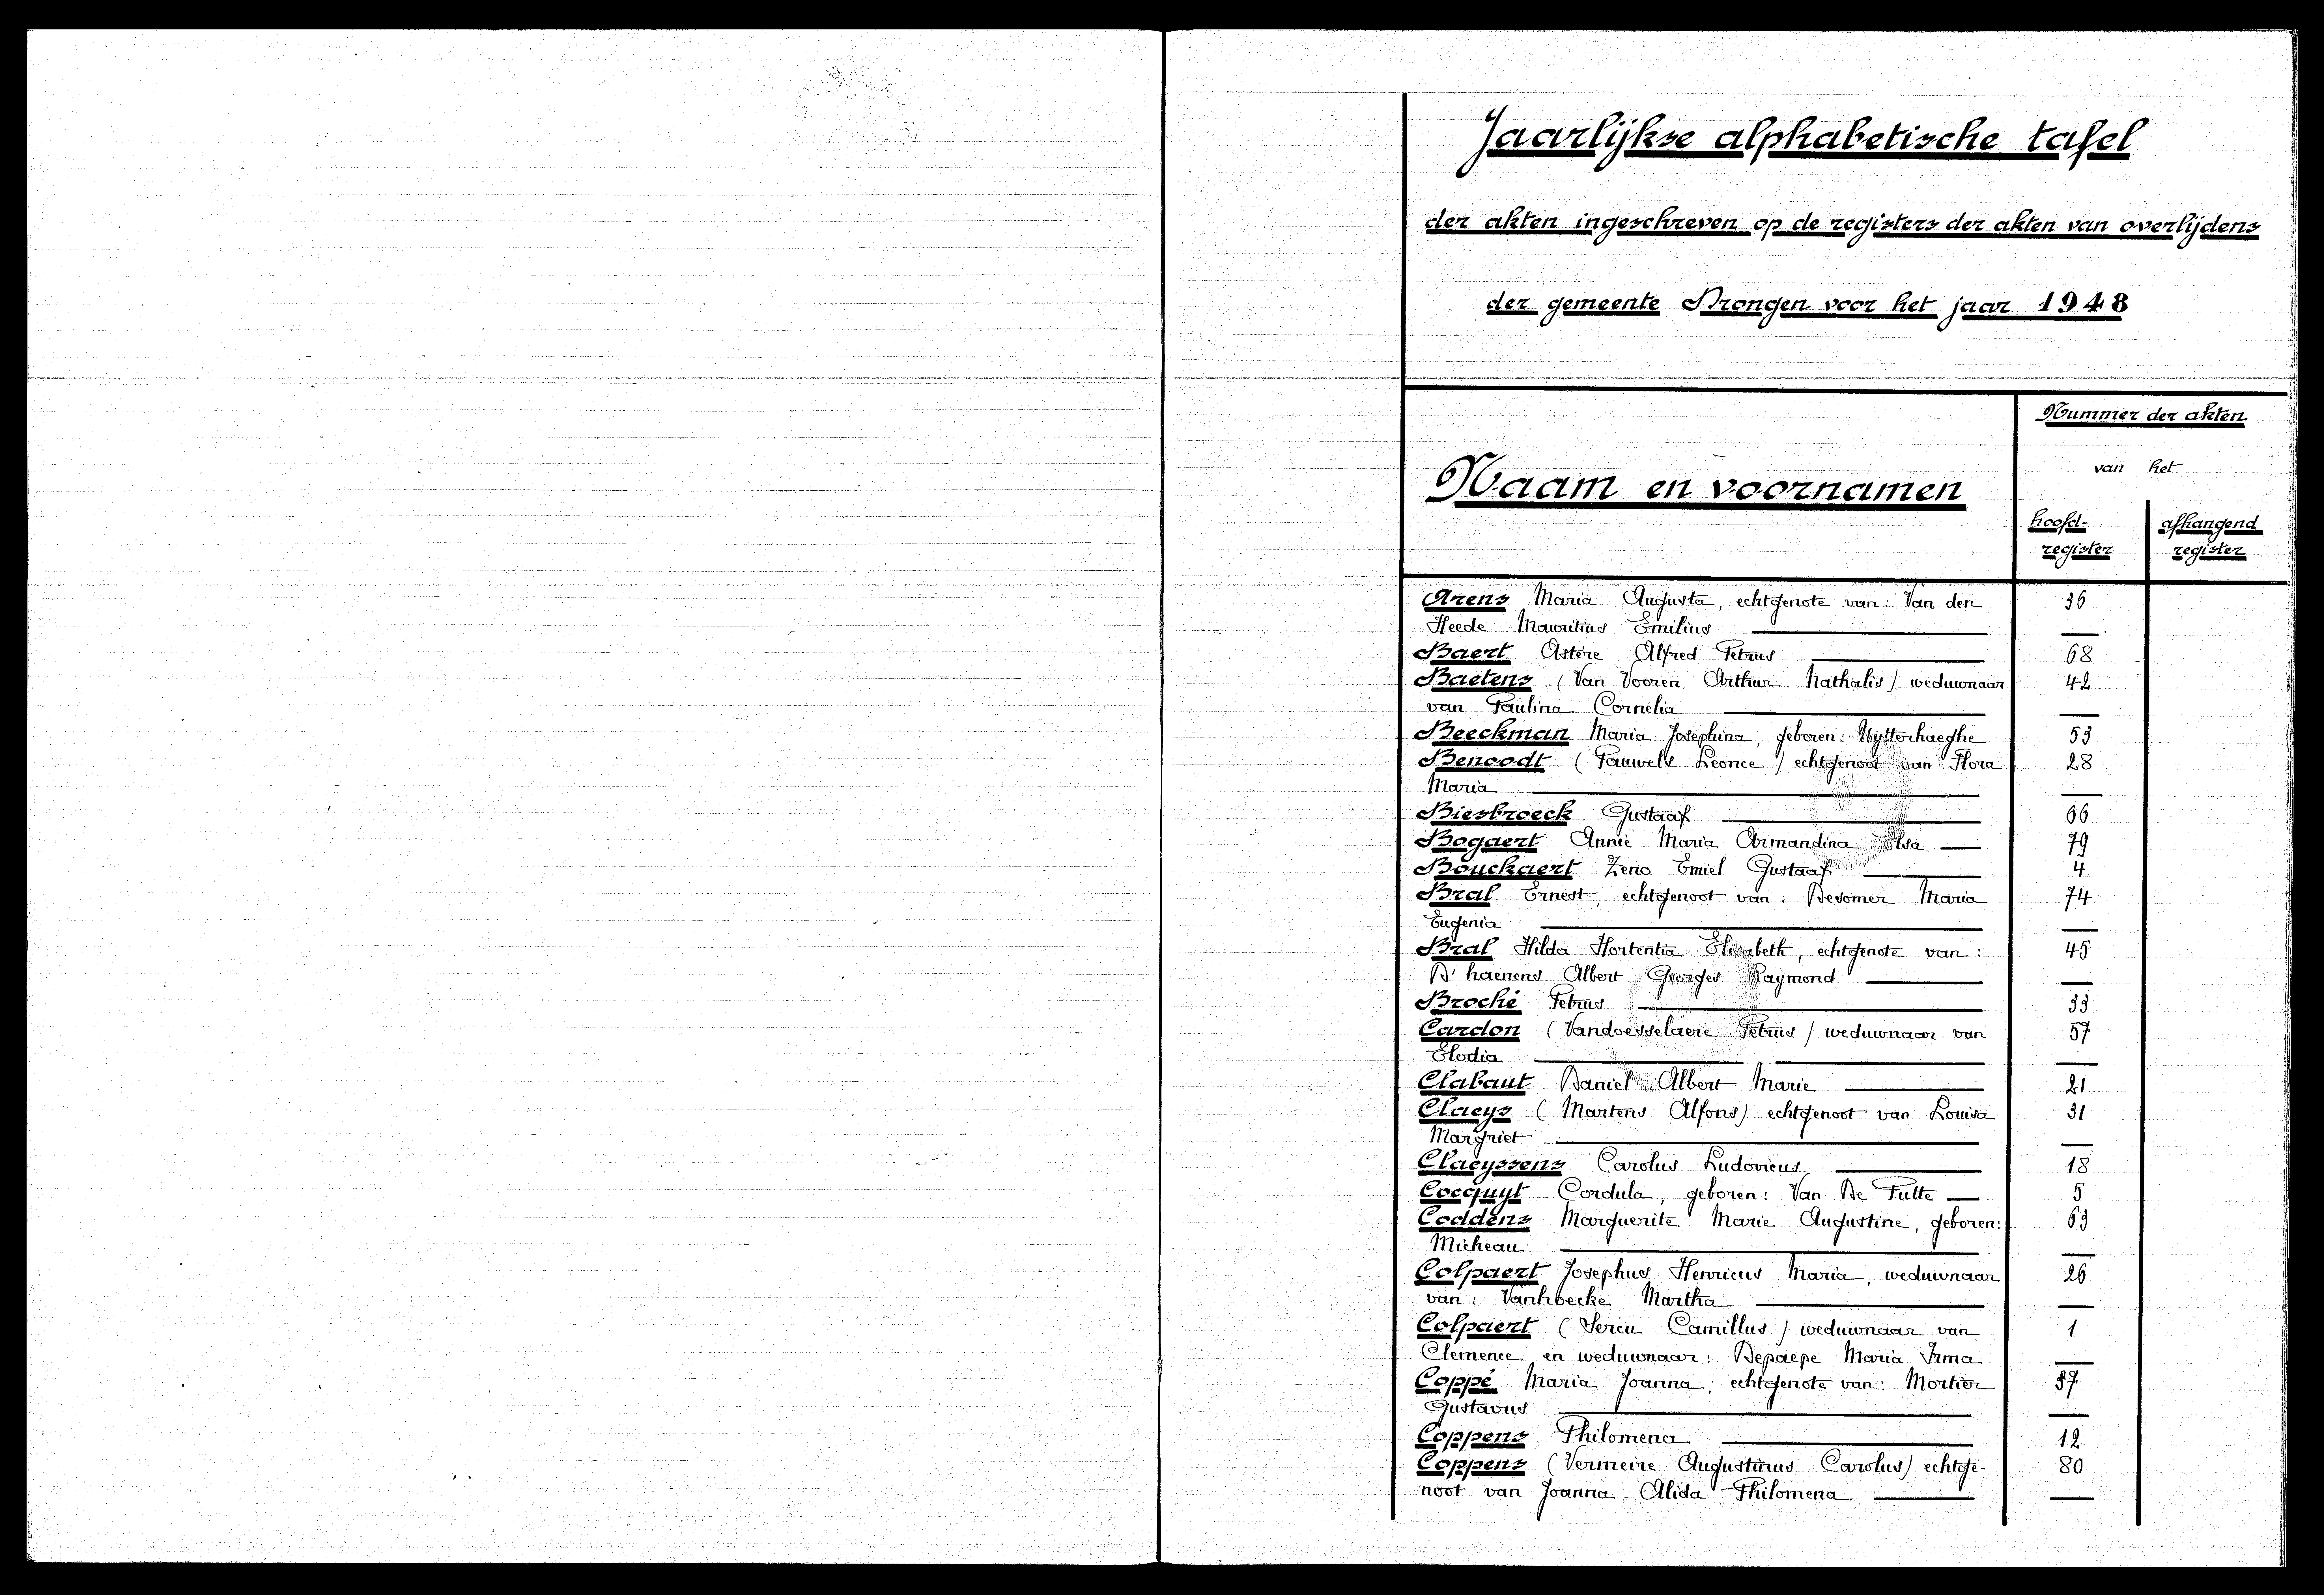 Jaarlijkse alphabetische tafel
der akten ingeschreven op de registers der akten van overlijdens
der gemeente Drongen voor het jaar 1948
Nummer der akten
van het
Naam en voornamen
hoofd- afhangend
register register
Arens Maria Augusta, echtgenote van: Van den 36
Heede Mauritius Emilius
Baert Astère Alfred Petrus 68
Baetens (Van Vooren Arthur Nathalis) weduwnaar 42
van Paulina Cornelia
Beeckman Maria Josephina, geboren: Uytterhaeghe 53
Benoodt (Pauwels Leonce) echtgenoot van Flora 28
Maria
Biesbroeck Gustaaf 66
Bogaert Annie Maria Armandina Elsa 79
Bouckaert Zeno Emiel Gustaaf 4
Bral Ernest, echtgenoot van: Desomer Maria 74
Eugenia
Bral Hilda Hortentia Elisabeth, echtgenote van: 45
D'haenens Albert Georges Raymond
Broché Petrus 33
Cardon (Vandoesselaere Petrus) weduwnaar van 57
Elodia
Clabaut Daniel Albert Marie 21
Claeys (Martens Alfons) echtgenoot van Louisa 31
Margriet
Claeyssens Carolus Ludovicus 18
Cocquyt Cordula, geboren: Van De Putte 5
Coddens Marguerite Marie Augustine, geboren: 63
Micheau
Colpaert Josephus Henricus Maria, weduwnaar 26
van: Vanhoecke Martha
Colpaert (Sercu Camillus) weduwnaar van 1
Clemence en weduwnaar: Depaepe Maria Irma
Coppé Maria Joanna, echtgenote van: Mortier 37
Gustavus
Coppens Philomena 12
Coppens (Vermeire Augustinus Carolus) echtge- 80
noot van Joanna Alida Philomena